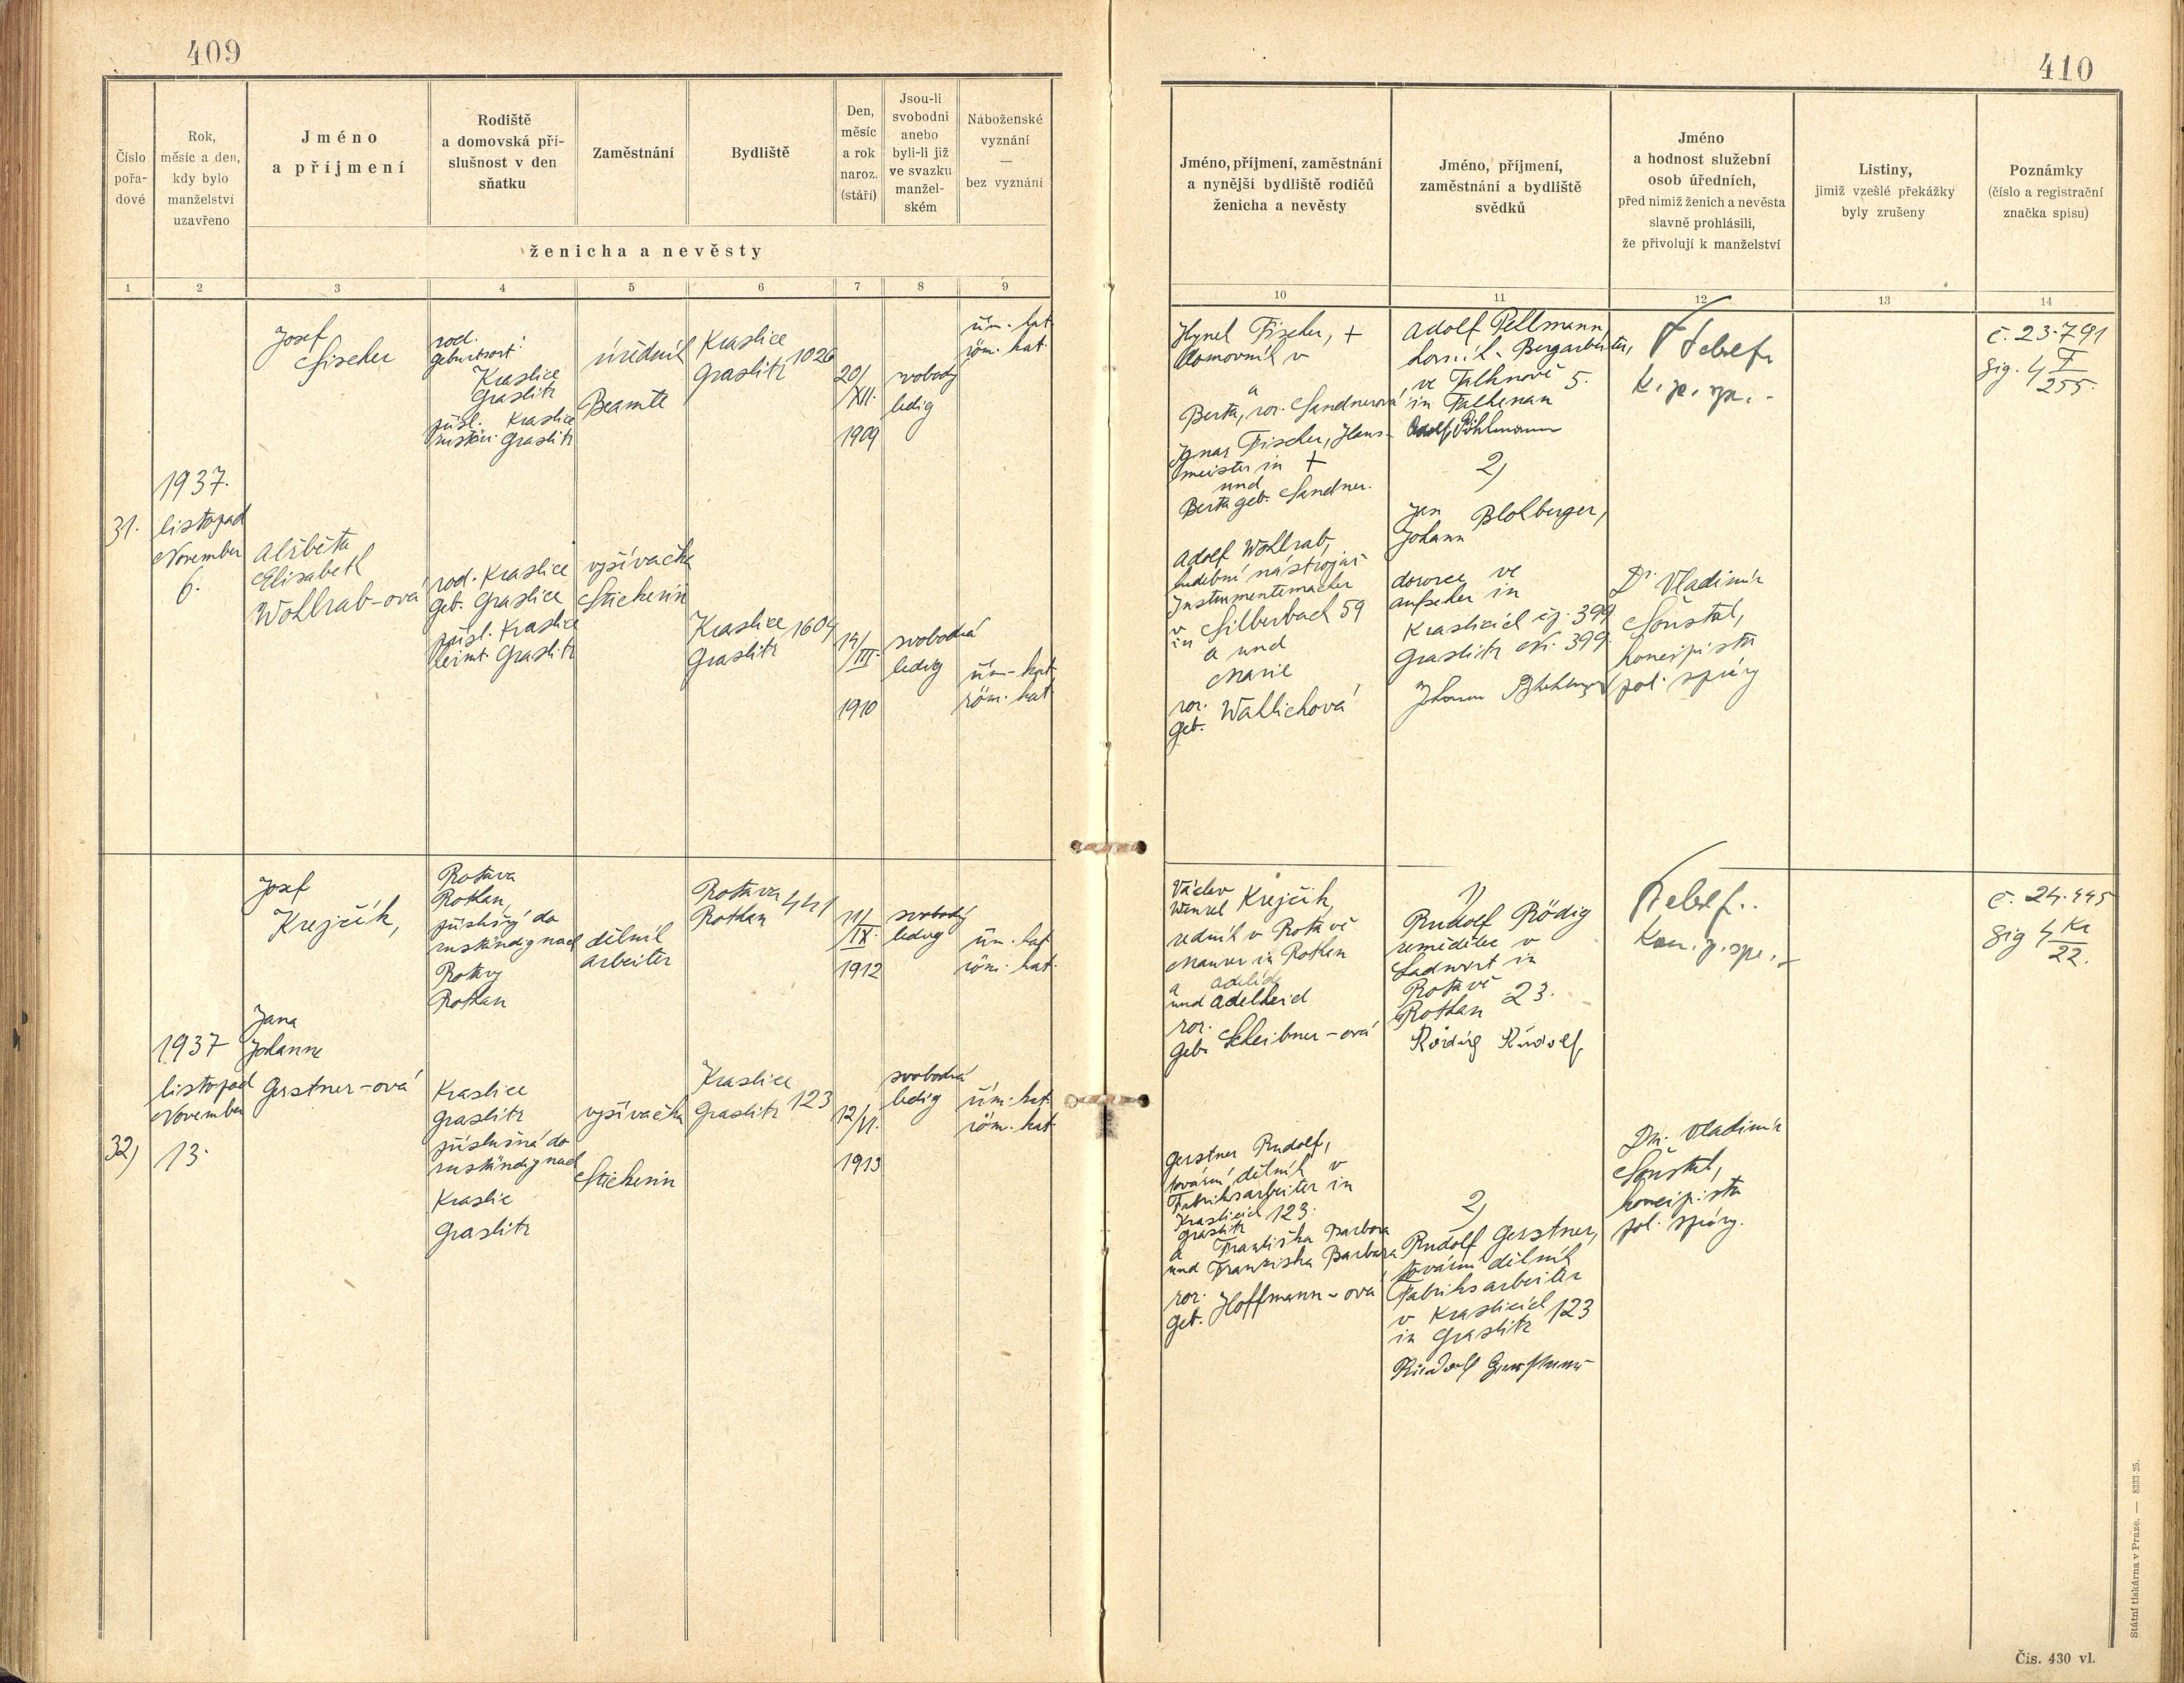 409
Číslo
pořa-
dové
Rok,
měsíc a den,
kdy bylo
manželství
uzavřeno
Jméno
a příjmení
Rodiště
a domovská pří-
slušnost v den
sňatku
Zaměstnání
Bydliště
Den,
měsíc
a rok
naroz.
(stáří)
Jsou-li
svobodni
anebo
byli-li již
ve svazku
manžel-
ském
Náboženské
vyznání
—
bez vyznání
ženicha a nevěsty
1 2 3 4 5 6 7 8 9
31.
1937.
listopad
November
6.
Josef
Fischer
rod.
geburtsort:
Kraslice
Graslitz
přísl. Kraslice
zuständ. Graslitz
úředník
Beamte
Kraslice
Graslitz 1026
20/
XII.
1909
svobodný
ledig
řím. kat.
röm. kat.
Alžběta
Elisabeth
Wohlrab-ová
rod. Kraslice
geb. Graslice
přísl. Kraslice
heimt. Graslitz
vyšívačka
Stickerin
Kraslice 1604
Graslitz
14/
III.
1910
svobodná
ledig
řím.-kat.
röm. kat.
32)
1937
listopad
November
13.
Josef
Krejčík,
Rotava
Rothau,
příslušný do
zuständig nach
Rotavy
Rothau
dělník
Arbeiter
Rotava 441
Rothau
11/
IX.
1912
svobodný
ledig
řím. kat.
röm. kat.
Jana
Johanne
Gerstner-ová
Kraslice
Graslitz
příslušná do
zuständig nach
Kraslic
Graslitz
vyšívačka
Stickerin
Kraslice
Graslitz 123
12/
VI.
1913
svobodná
ledig
řím. kat.
röm. kat.
410
Jméno, příjmení, zaměstnání
a nynější bydliště rodičů
ženicha a nevěsty
Jméno, příjmení,
zaměstnání a bydliště
svědků
Jméno
a hodnost služební
osob úředních,
před nimiž ženich a nevěsta
slavně prohlásili,
že přivolují k manželství
Listiny,
jimiž vzešlé překážky
byly zrušeny
Poznámky
(číslo a registrační
značka spisu)
10 11 12 13 14
Hynek Fischer, +
domovník v
a
Berta, roz. Sandnerová
Ignaz Fischer, Haus-
meister in +
und
Berta geb. Sandner.
Adolf Wohlrab,
hudební nástrojař
Instrumentemacher
v
in Silberbach 59
a und
Marie
roz.
geb. Wahlichová
Adolf Pellmann,
horník - Bergarbeiter,
ve Falknově 5.
in Falkenau
Adolf Pöhlmann
2)
Jan
Johann Blohberger,
dozorce ve
Aufseher in
Kraslicích čj. 399
Graslitz Nr. 399.
k. p. sp.
Dr. Vladimír
Šoustal,
koncipista
pol. správy
č. 23.791
Sig. 4 F
255.
Václav
Wenzel Krejčík,
zedník v Rotavě
Maurer in Rothau
a Adelid
und Adelheid
roz.
geb. Scheibner-ová
1)
Rudolf Rödig
zemědělec v
Landwirt in
Rotavě
Rothau 23.
Rödig Rudolf
Kon. p. sp.
č. 24.445
Sig 4 Kr
22.
Gerstner Rudolf,
tovární dělník v
Fabriksarbeiter in
Kraslicích 123.
Graslitz
a Františka Barbora
und Franziska Barbara
roz.
geb. Hoffmann-ová
2)
Rudolf Gerstner,
tovární dělník
Fabriksarbeiter
v Kraslicích 123
in Graslitz
Rudolf Gerstner
Dr. Vladimír
Šoustal,
koncipista
pol. správy.
Státní tiskárna v Praze. — 8333 25.
Čis. 430 vl.